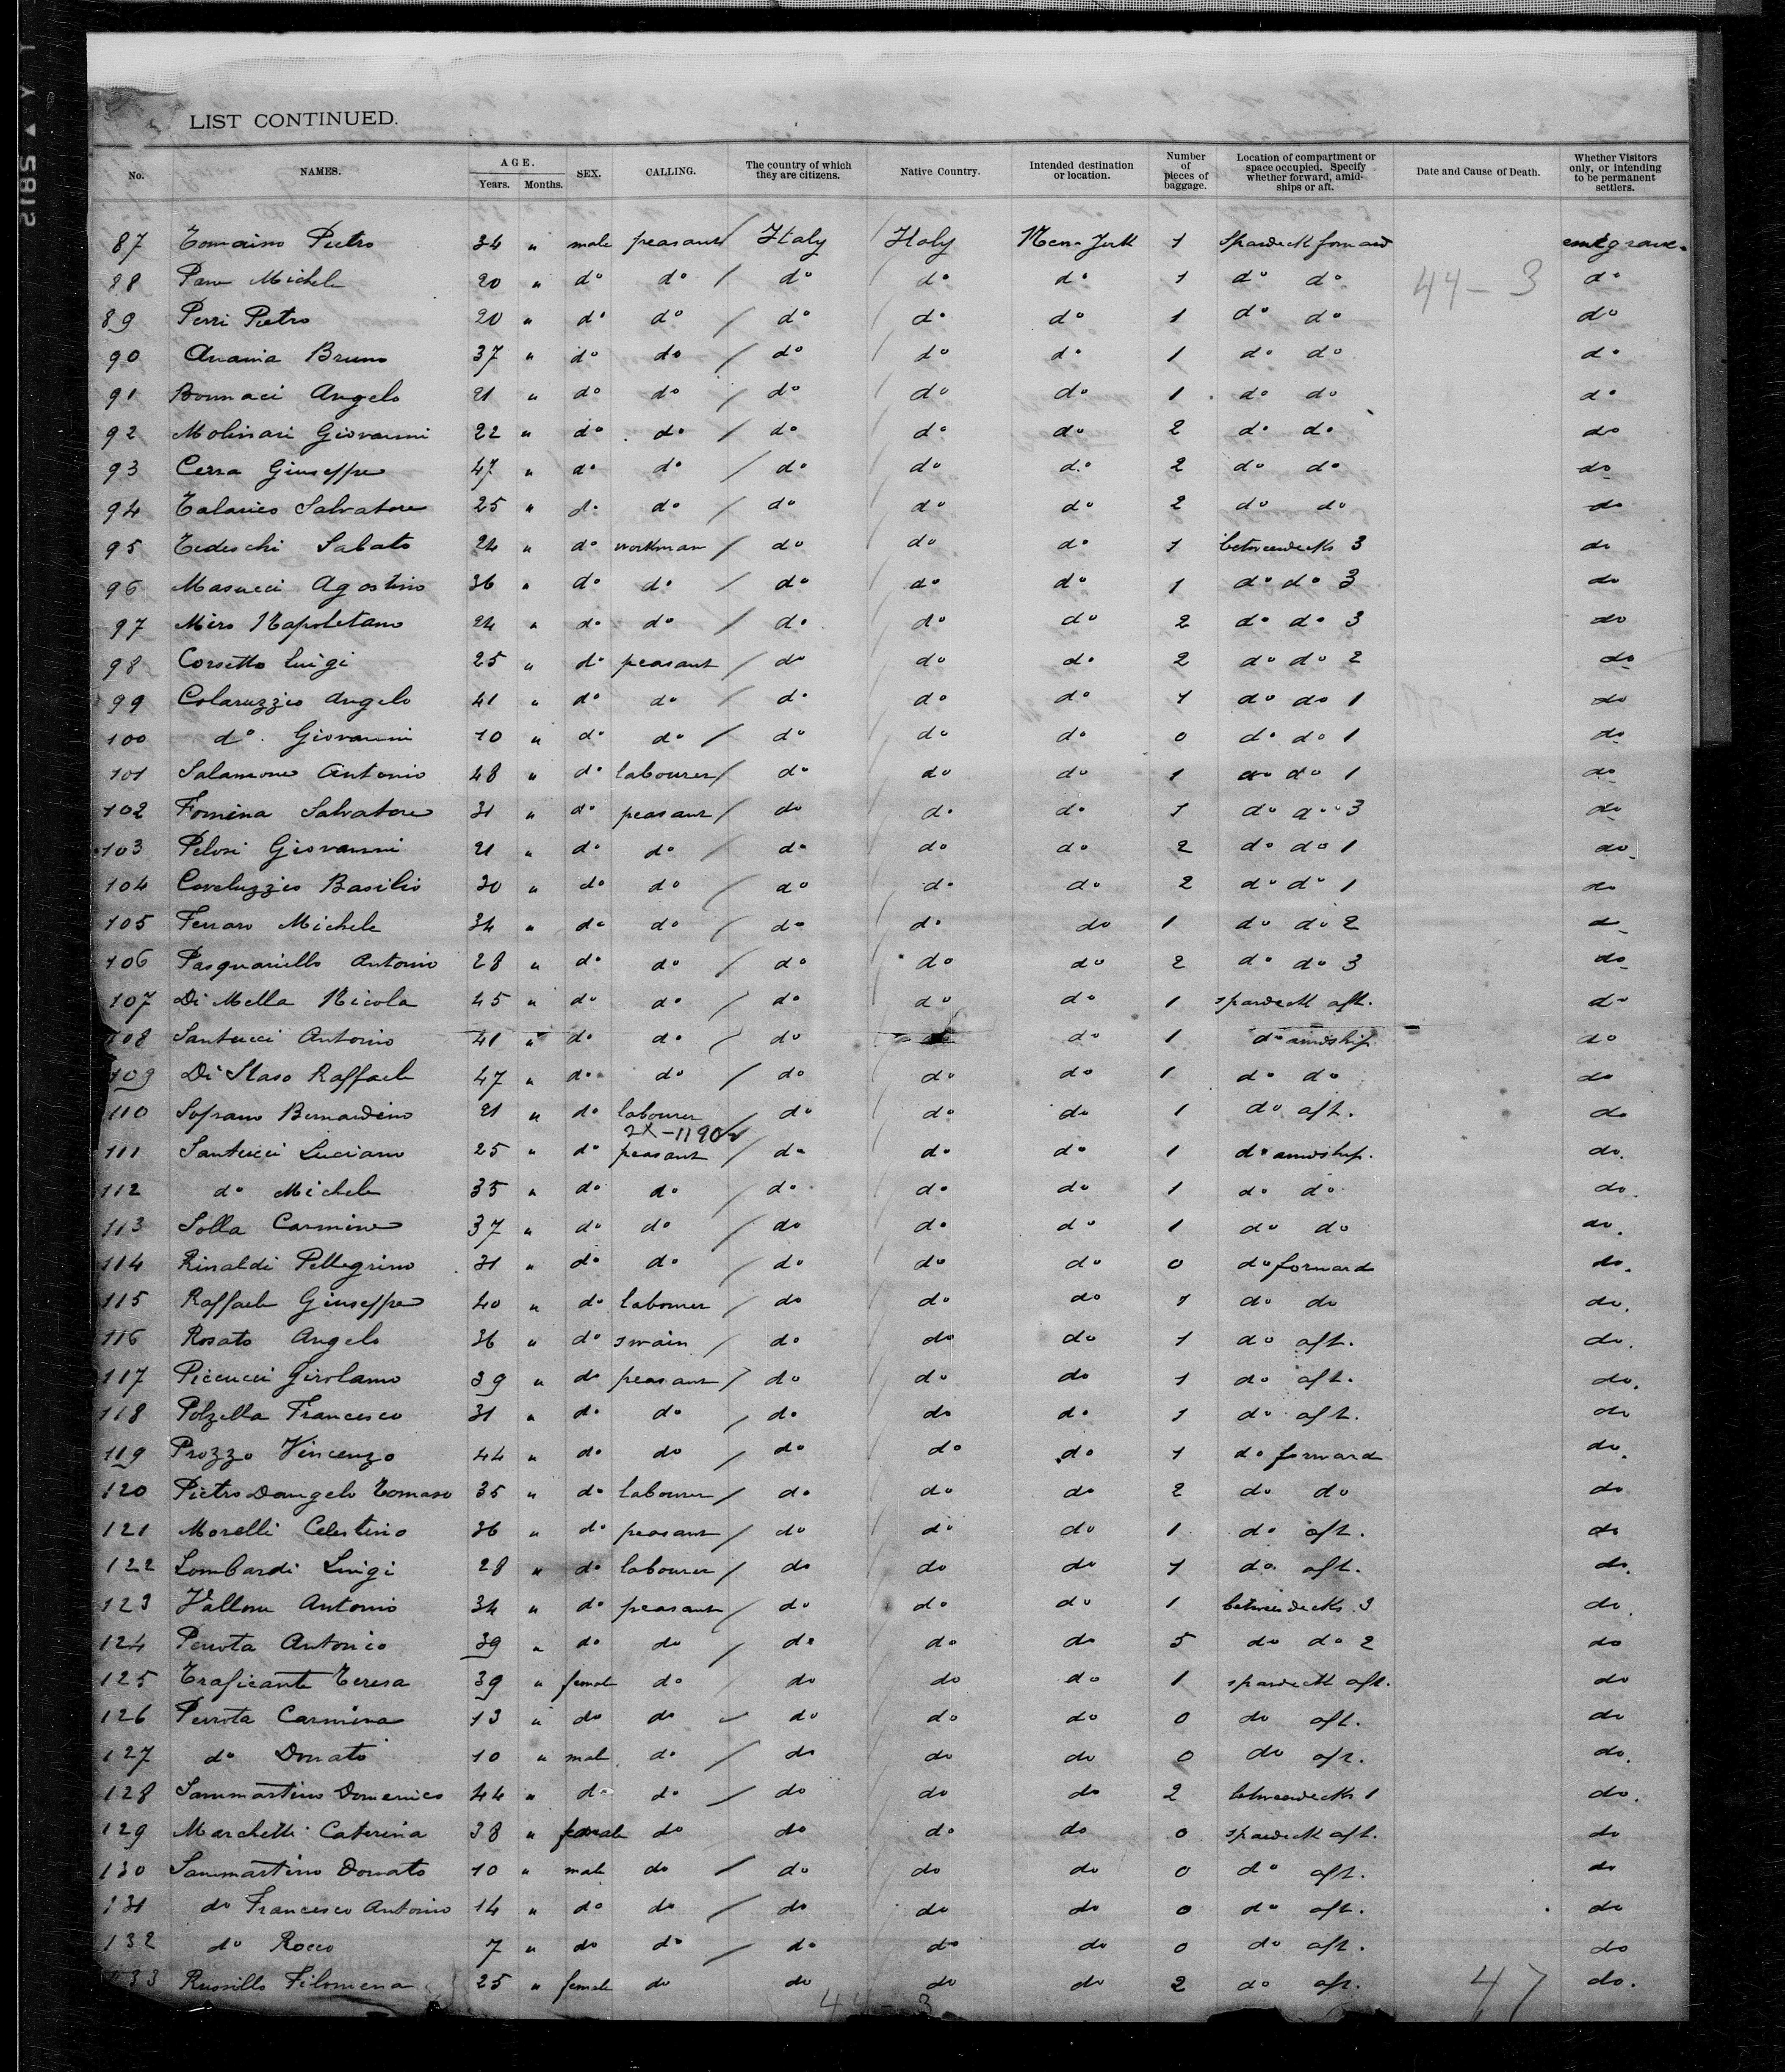 LIST CONTINUED.
No. NAMES. AGE. Years. Months. SEX. CALLING. The country of which they are citizens. Native Country. Intended destination or location. Number of pieces of baggage. Location of compartment or space occupied. Specify whether forward, amidships or aft. Date and Cause of Death. Whether Visitors only, or intending to be permanent settlers.
87 Tomaino Pietro 34 " male peasant / Italy Italy New-York 1 Spardeck forward
88 Michele 20 " do do / do do do 1 do do 44-3 do
89 Perri Pietro 20 " do do / do do do 1 do do do
90 Anania Bruno 37 " do do / do do do 1 do do do
91 Bonnaci Angelo 21 " do do / do do do 1 do do do
92 Molinari Giovanni 22 " do do / do do do 2 do do do
93 Cerra Giuseppe 47 " do do / do do do 2 do do do
94 Talarico Salvatore 25 " do do / do do do 2 do do do
95 Tedeschi Sabato 24 " do workman / do do do 1 betweendecks 3 do
96 Masucci Agostino 36 " do do / do do do 1 do do 3 do
97 Miro Napoletano 24 " do do / do do do 2 do do 3 do
98 Corsetto Luigi 25 " do peasant / do do do 2 do do 2 do
99 Colaruzzio Angelo 41 " do do / do do do 1 do do 1 do
100 do. Giovanni 10 " do do / do do do 0 do do 1 do
101 Salamone Antonio 48 " do labourer / do do do 1 do do 1 do
102 Fomina Salvatore 31 " do peasant / do do do 1 do do 3 do
103 Pelosi Giovanni 21 " do do / do do do 2 do do 1 do
104 Coveluzzio Basilio 30 " do do / do do do 2 do do 1 do
105 Ferraro Michele 34 " do do / do do do 1 do do 2 do
106 Pasquariello Antonio 28 " do do / do do do 2 do do 3 do
107 Di Mella Nicola 45 " do do / do do do 1 spardeck aft. do
108 Santucci Antonio 41 " do do / do do 1 do amidship do
109 Di Staso Raffaele 47 " do do / do do do 1 do do do
110 Sofrano Bernardino 21 " do labourer / do do do 1 do aft. do
2X-11904
111 Santucci Luciano 25 " do peasant / do do do 1 do amidship. do.
112 do Michele 35 " do do / do do do 1 do do do.
113 Solla Carmine 37 " do do / do do do 1 do do do.
114 Rinaldi Pellegrino 31 " do do / do do do 0 do forward do.
115 Raffaele Giuseppe 40 " do labourer / do do do 1 do do do.
116 Rosato Angelo 36 " do swain / do do do 1 do aft. do.
117 Piccucci Girolamo 39 " do peasant / do do do 1 do aft. do.
118 Polzella Francesco 31 " do do / do do do 1 do aft. do
119 Prozzo Vincenzo 44 " do do / do do do 1 do forward do.
120 Pietro Dangelo Tomaso 35 " do labourer / do do do 2 do do do
121 Morelli Celestino 36 " do peasant / do do do 1 do aft. do
122 Lombardi Luigi 28 " do labourer / do do do 1 do. aft. do.
123 Vallone Antonio 34 " do peasant / do do do 1 betweendecks 3 do.
124 Perrota Antonio 39 " do do / do do do 5 do do 2 do
125 Traficante Teresa 39 " female do do do do 1 spardeck aft. do
126 Perrota Carmina 13 " do do do do do 0 do aft. do
127 do Donato 10 " male do / do do do 0 do aft. do.
128 Sammartino Domenico 44 " do do / do do do 2 betweendecks 1 do.
129 Marchetti Caterina 38 " female do do do do 0 spardeck aft. do
130 Sammartino Donato 10 " male do / do do do 0 do aft. do
131 do Francesco Antonio 14 " do do / do do do 0 do aft. do
132 do Rocco 7 " do do / do do do 0 do aft. do
133 Russillo Filomena 25 " female do do do do 2 do aft. do.
44-3 47